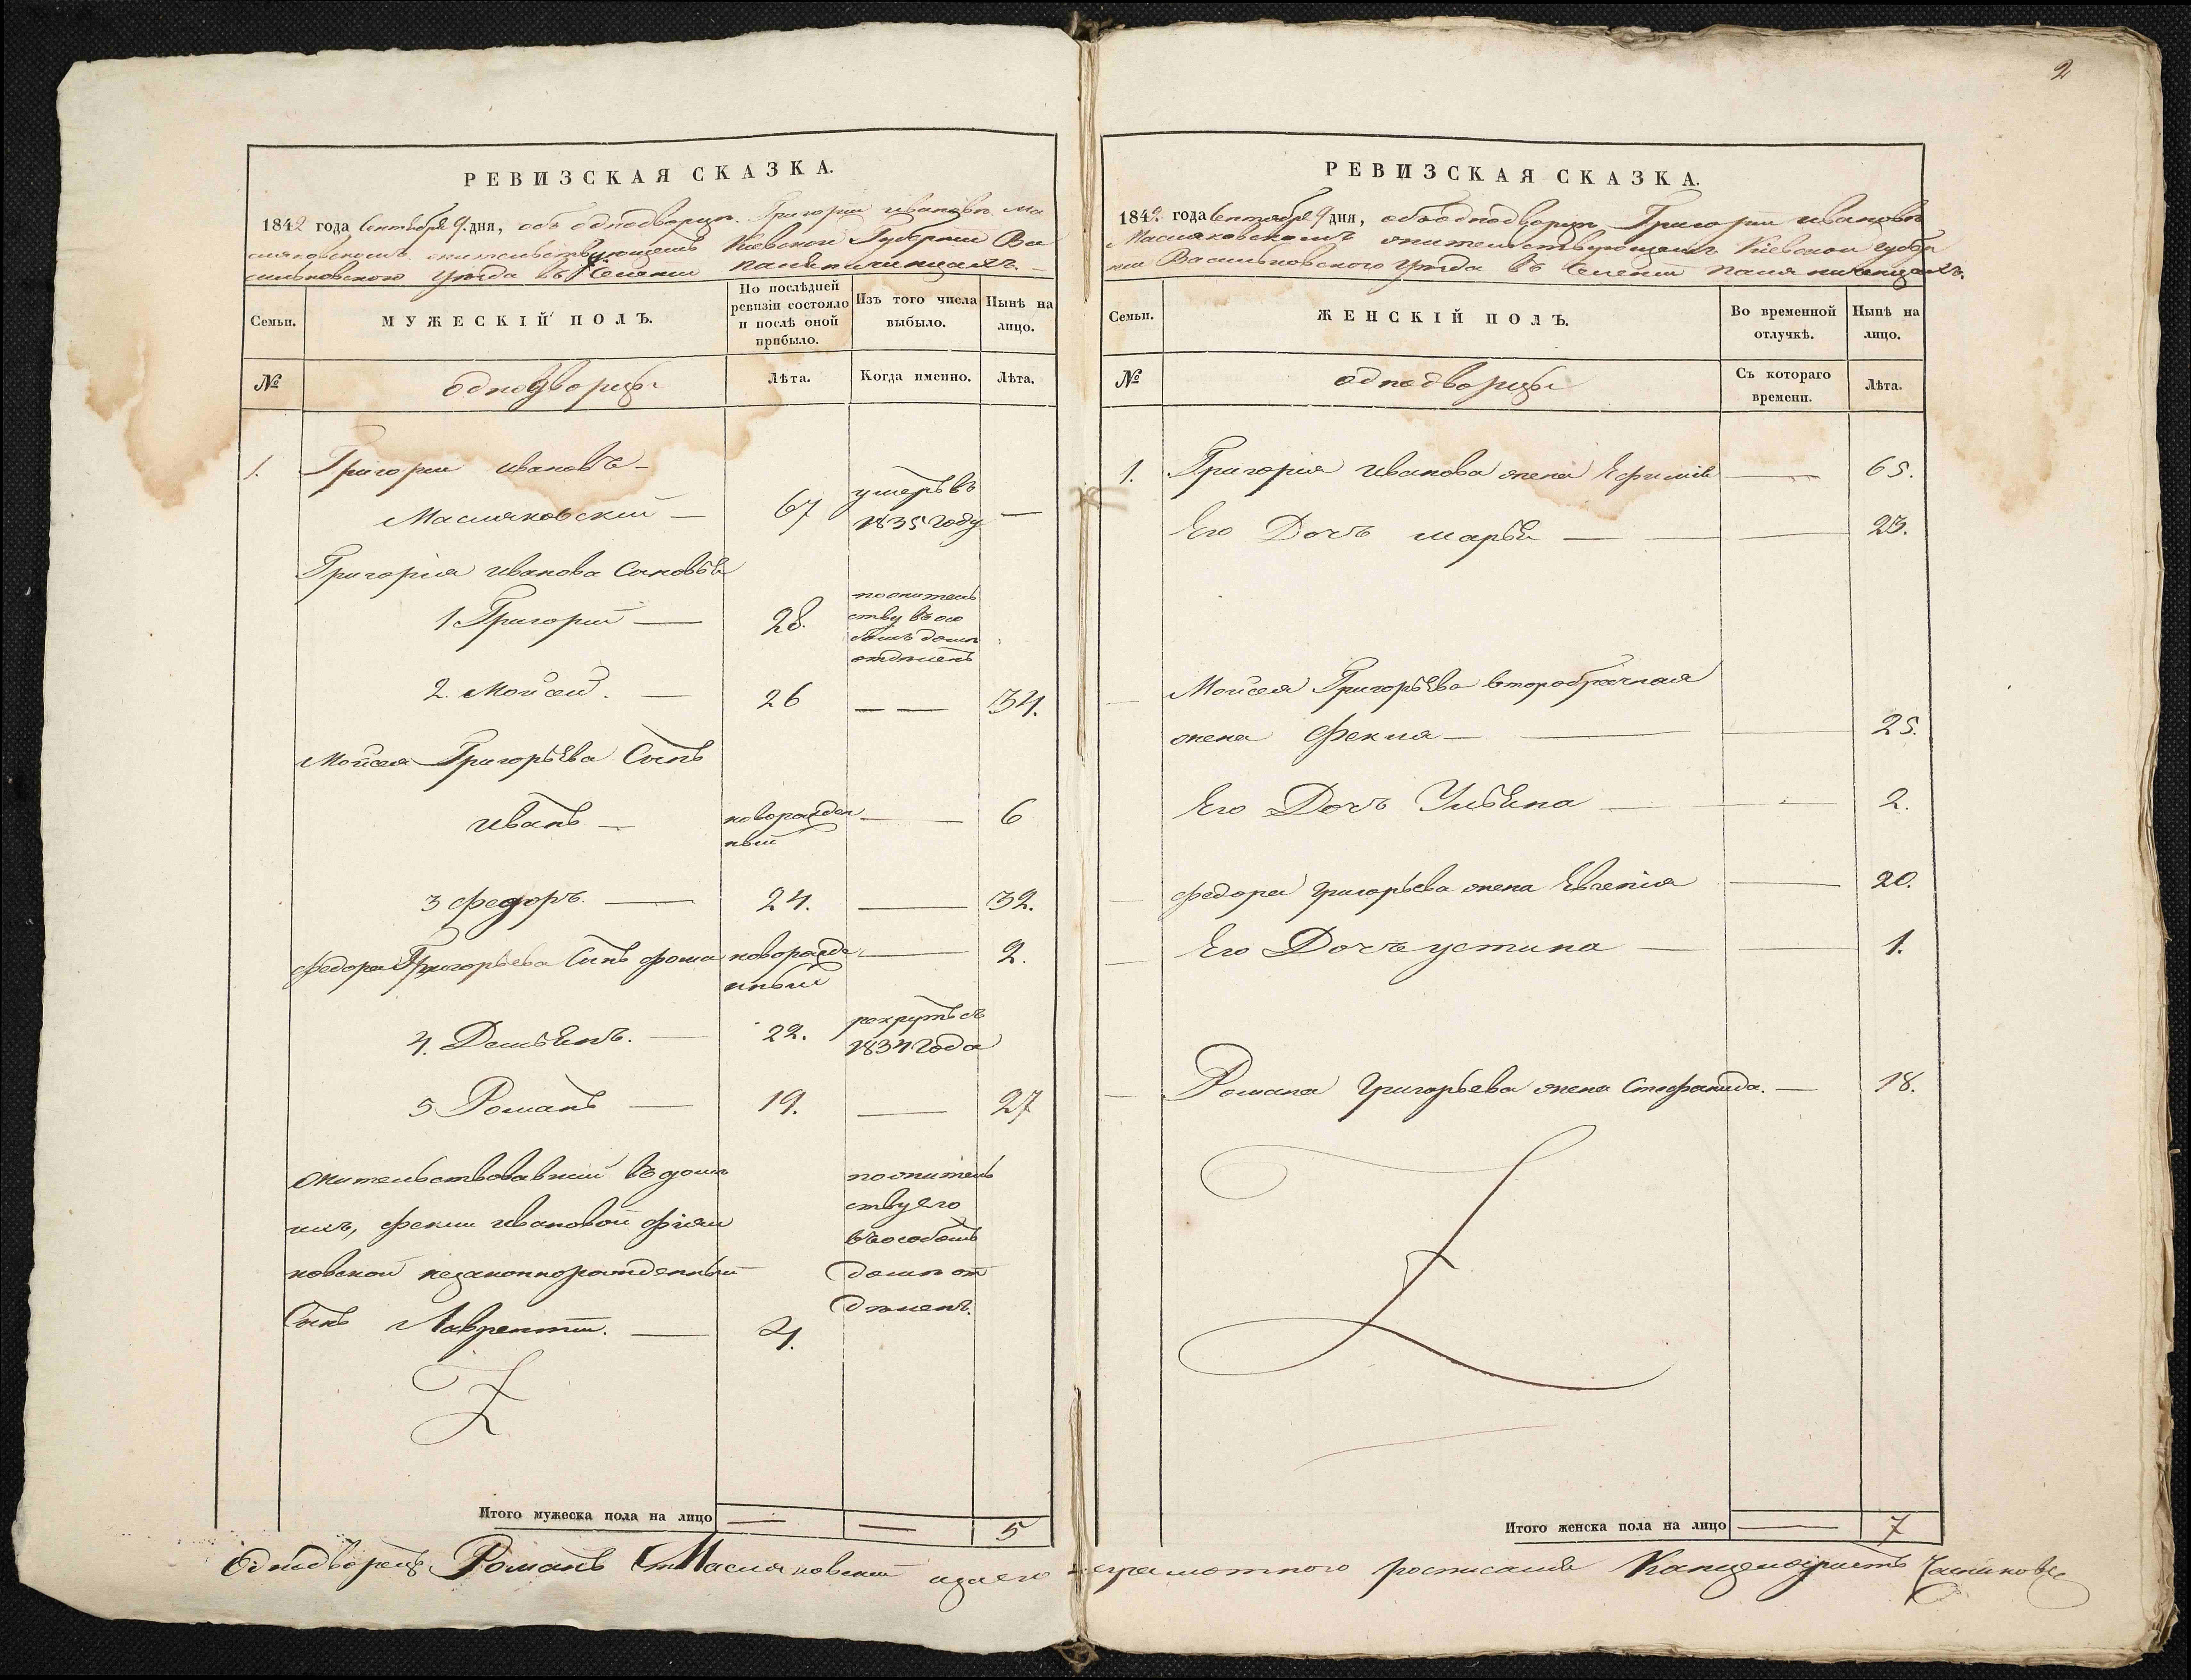 2
РЕВИЗСКАЯ СКАЗКА.
1842 года Сентября 9. дня, объ однодворцѣ Григорiи Ивановѣ Ма
сляковскомъ жительствующемъ Кiевской Губернiи Ва
сильковскаго Уѣзда въ Селенiи
Семьи.
МУЖЕСКІЙ ПОЛЪ.
По послѣдней ревизіи состояло и послѣ оной прибыло.
Изъ того числа выбыло.
Нынѣ на лицо.
№
однодворцы
Лѣта.
Когда именно.
Лѣта.
1. Григорiи Ивановъ
Масляковскiй — 67 умеръ въ 1835 году —
Григорiя Иванова Сыновья
1 Григорiй — 28. по житель ству въ осо бомъ домѣ отдѣленъ
2. Мойсей. — 26 — — 34.
Мойсея Григорьева Сынъ
Иванъ — новорожден ный — 6
3 Федоръ. — 24. — 32.
Федора Григорьева Сынъ Фома новорожде нный — 2.
4. Демьянъ. — 22. рекрутъ съ 1834 года
5 Романъ — 19. — 27
жительствовавшiй въ домѣ
ихъ, Феклы Ивановой
незаконнорожденный
Сынъ Лаврентiй. — 4. по житель ству его въ особомъ домѣ от дѣленъ.
Итого мужеска пола на лицо — — 5
РЕВИЗСКАЯ СКАЗКА.
1842. года Сентября 9 дня, объ однодворцѣ Григорiи Ивановѣ
Масляковскомъ жительствующемъ Кiевской Губер
нiи Васильковскаго Уѣзда въ Селенiи
Семьи.
ЖЕНСКІЙ ПОЛЪ.
Во временной отлучкѣ.
Нынѣ на лицо.
№
однодворцы
Съ котораго времени.
Лѣта.
1. Григорiя Иванова жена Ефимiя — 65.
Его Дочь Марья — — — 23.
Мойсея Григорьева второбрачная
жена Фекла — — — 25.
Его Дочь Ульяна — — — 2.
Федора Григорьева жена Евгенiя — 20.
Его Дочь Устина — — 1.
Романа Григорьева жена Стефанида. — 18.
Итого женска пола на лицо — 7
Однодворецъ Романъ Масляковскiй а за его неграмотного росписался Канцеляристъ